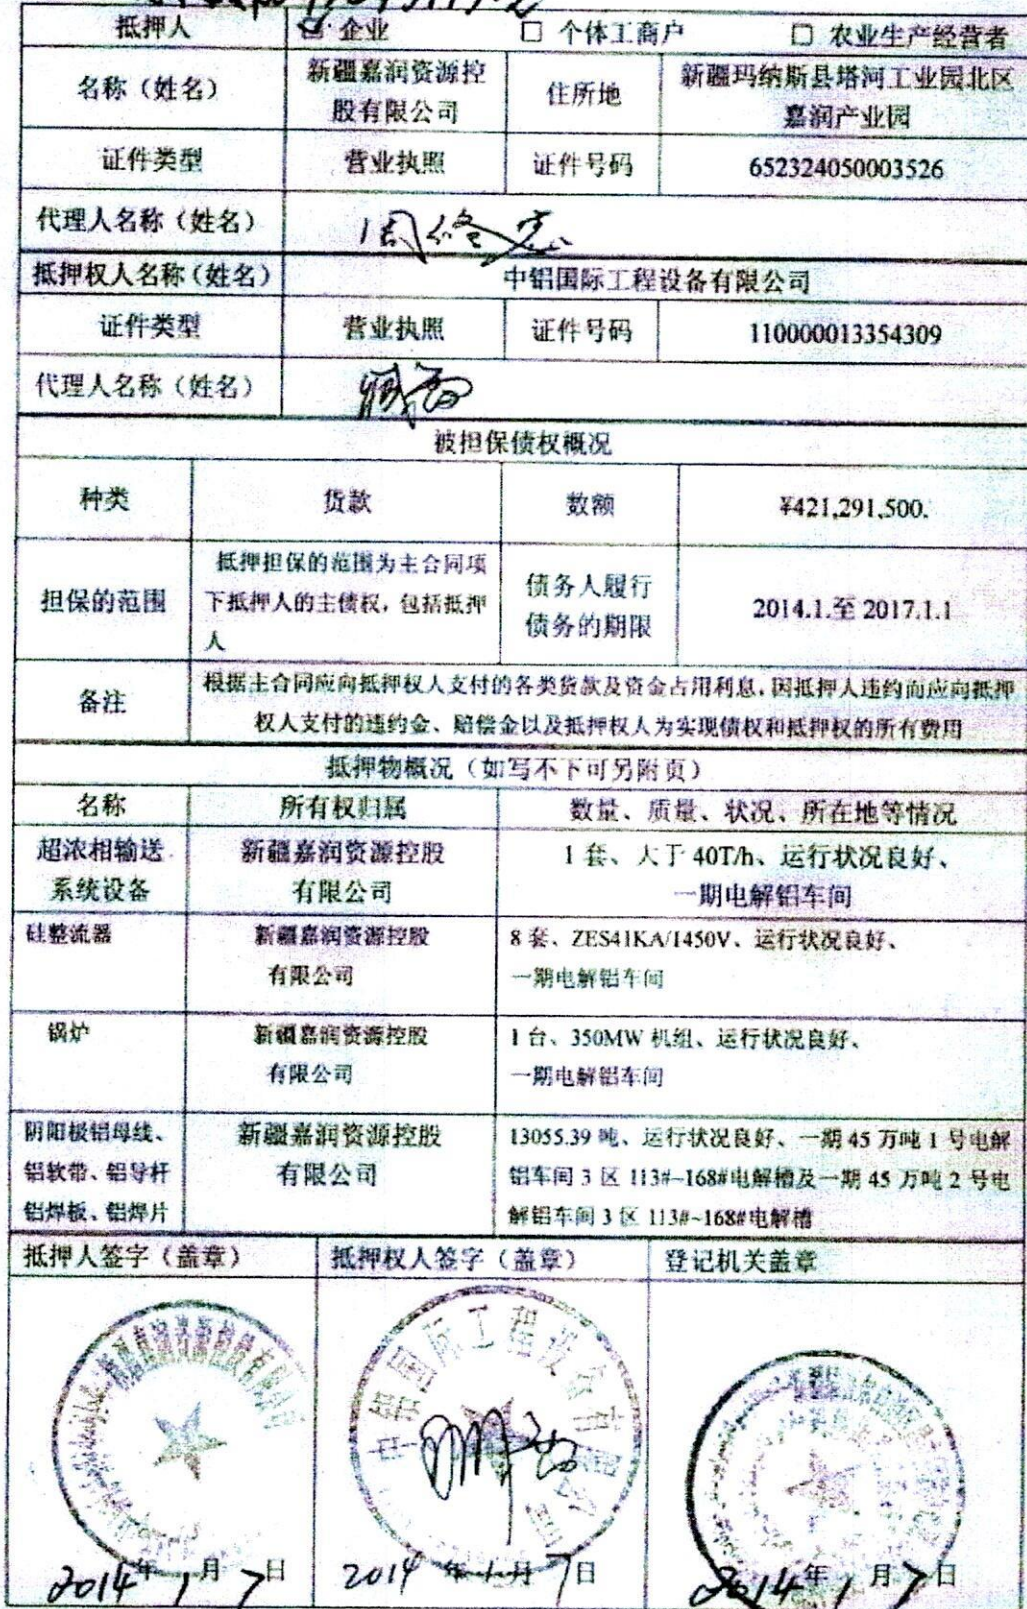 抵押人 ☑ 企业 □ 个体工商户 □ 农业生产经营者
名称（姓名） 新疆嘉润资源控 住所地 新疆玛纳斯县塔河工业园北区
股有限公司 嘉润产业园
证件类型 营业执照 证件号码 652324050003526
代理人名称（姓名）
抵押权人名称（姓名） 中铝国际工程设备有限公司
证件类型 营业执照 证件号码 110000013354309
代理人名称（姓名）
被担保债权概况
种类 货款 数额 ¥421,291,500.
抵押担保的范围为主合同项
担保的范围 下抵押人的主债权，包括抵押 债务人履行 2014.1.至 2017.1.1
人 债务的期限
备注 根据主合同应向抵押权人支付的各类货款及资金占用利息，因抵押人违约而应向抵押
权人支付的违约金、赔偿金以及抵押权人为实现债权和抵押权的所有费用
抵押物概况（如写不下可另附页）
名称 所有权归属 数量、质量、状况、所在地等情况
超浓相输送 新疆嘉润资源控股 1 套、大于 40T/h、运行状况良好、
系统设备 有限公司 一期电解铝车间
硅整流器 新疆嘉润资源控股 8 套、ZES41KA/1450V、运行状况良好、
有限公司 一期电解铝车间
锅炉 新疆嘉润资源控股 1 台、350MW 机组、运行状况良好、
有限公司 一期电解铝车间
阴阳极铝母线、 新疆嘉润资源控股 13055.39 吨、运行状况良好、一期 45 万吨 1 号电解
铝软带、铝导杆 有限公司 铝车间 3 区 113#~168#电解槽及一期 45 万吨 2 号电
铝焊板、铝焊片 解铝车间 3 区 113#~168#电解槽
抵押人签字（盖章） 抵押权人签字（盖章） 登记机关盖章
2014年 1月 7日 2014年 1月 7日 2014年 1月 7日